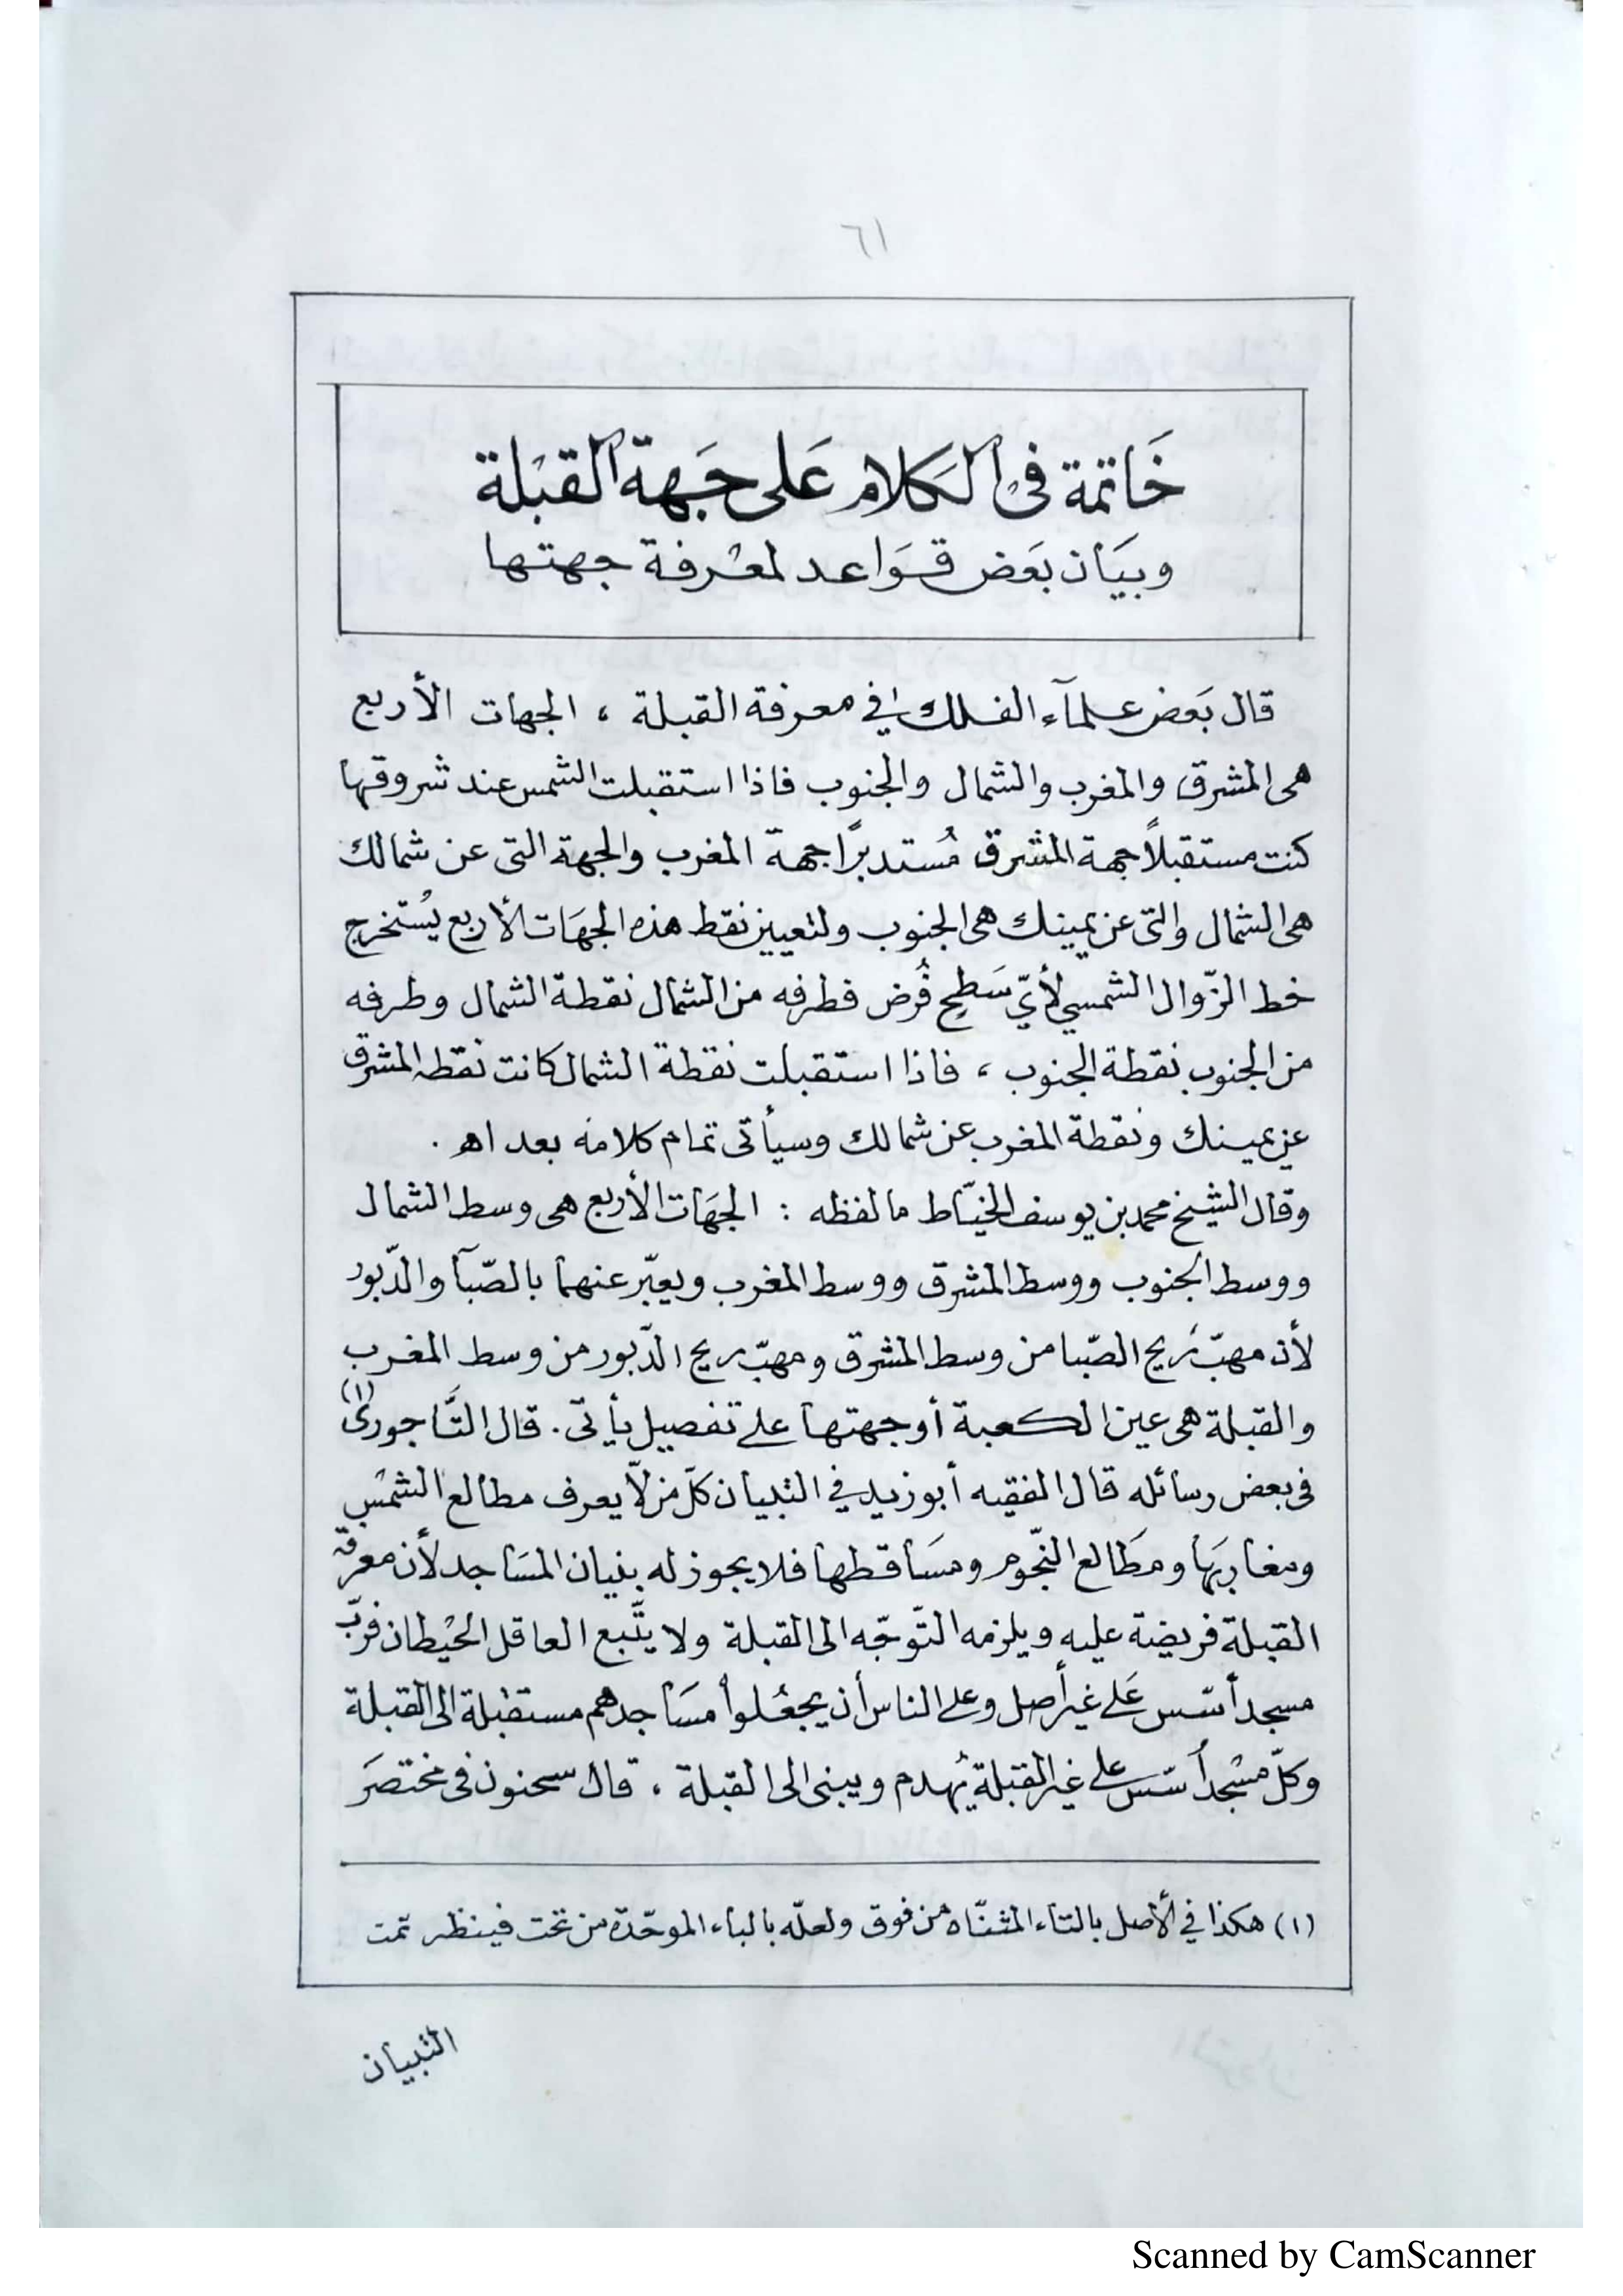 ٦١
خَاتمة فى الكَلام عَلى جَهة القبْلة
وبيَان بَعَض قَوَاعد لمعْرفة جهتها
قال بَعَض علمآء الفلك في معرفة القبلة ، الجهات الأربع
هى المشرق والمغرب والشمال والجنوب فاذا استقبلت الشمس عند شروقها
كنت مستقبلاً جهة المشرق مُستدبرًا جهة المغرب والجهة التى عن شمالك
هى الشمال والتى عن يمينك هى الجنوب ولتعيين نقط هذه الجهَات الأربع يُستخرج
خط الزّوال الشمسي لأيّ سَطح فُرض فطرفه من الشمال نقطة الشمال وطرفه
من الجنوب نقطة الجنوب ، فاذا استقبلت نقطة الشمال كانت نقطة المشرق
عن يمينك ونقطة المغرب عن شمالك وسيأتى تمام كلامه بعد اهـ .
وقال الشيخ محمد بن يوسف الخيّاط ما لفظه : الجهَات الأربع هى وسط الشمال
ووسط الجنوب ووسط المشرق ووسط المغرب ويعبّر عنهما بالصّبآ والدّبور
لأن مهبّ ريح الصّبا من وسط المشرق ومهبّ ريح الدّبور من وسط المغرب
والقبلة هى عين الكعبة أو جهتها على تفصيل يأتى . قال التَّاجورى (١)
فى بعض رسائله قال الفقيه أبو زيد في التبيان كلّ من لّا يعرف مطالع الشمْس
ومغاربَها ومطَالع النّجوم ومسَاقطها فلا يجوز له بنيان المسَاجد لأن معرفة
القبلة فريضة عليه ويلزمه التّوجّه الى القبلة ولا يتَّبع العاقل الحيْطان فربّ
مسجد أسّس عَلى غير أصل وعلى الناس أن يجعْلوا مسَاجدهم مستقبلة الى القبلة
وكلّ مسْجد أسّس على غير القبلة يُهدم ويبنى الى القبلة ، قال سحنون فى مختصَر
(١) هكذا في الأصل بالتاء المثنّاه من فوق ولعلّه بالباء الموحّدة من تحت فينظر تمّت
التبيان
Scanned by CamScanner